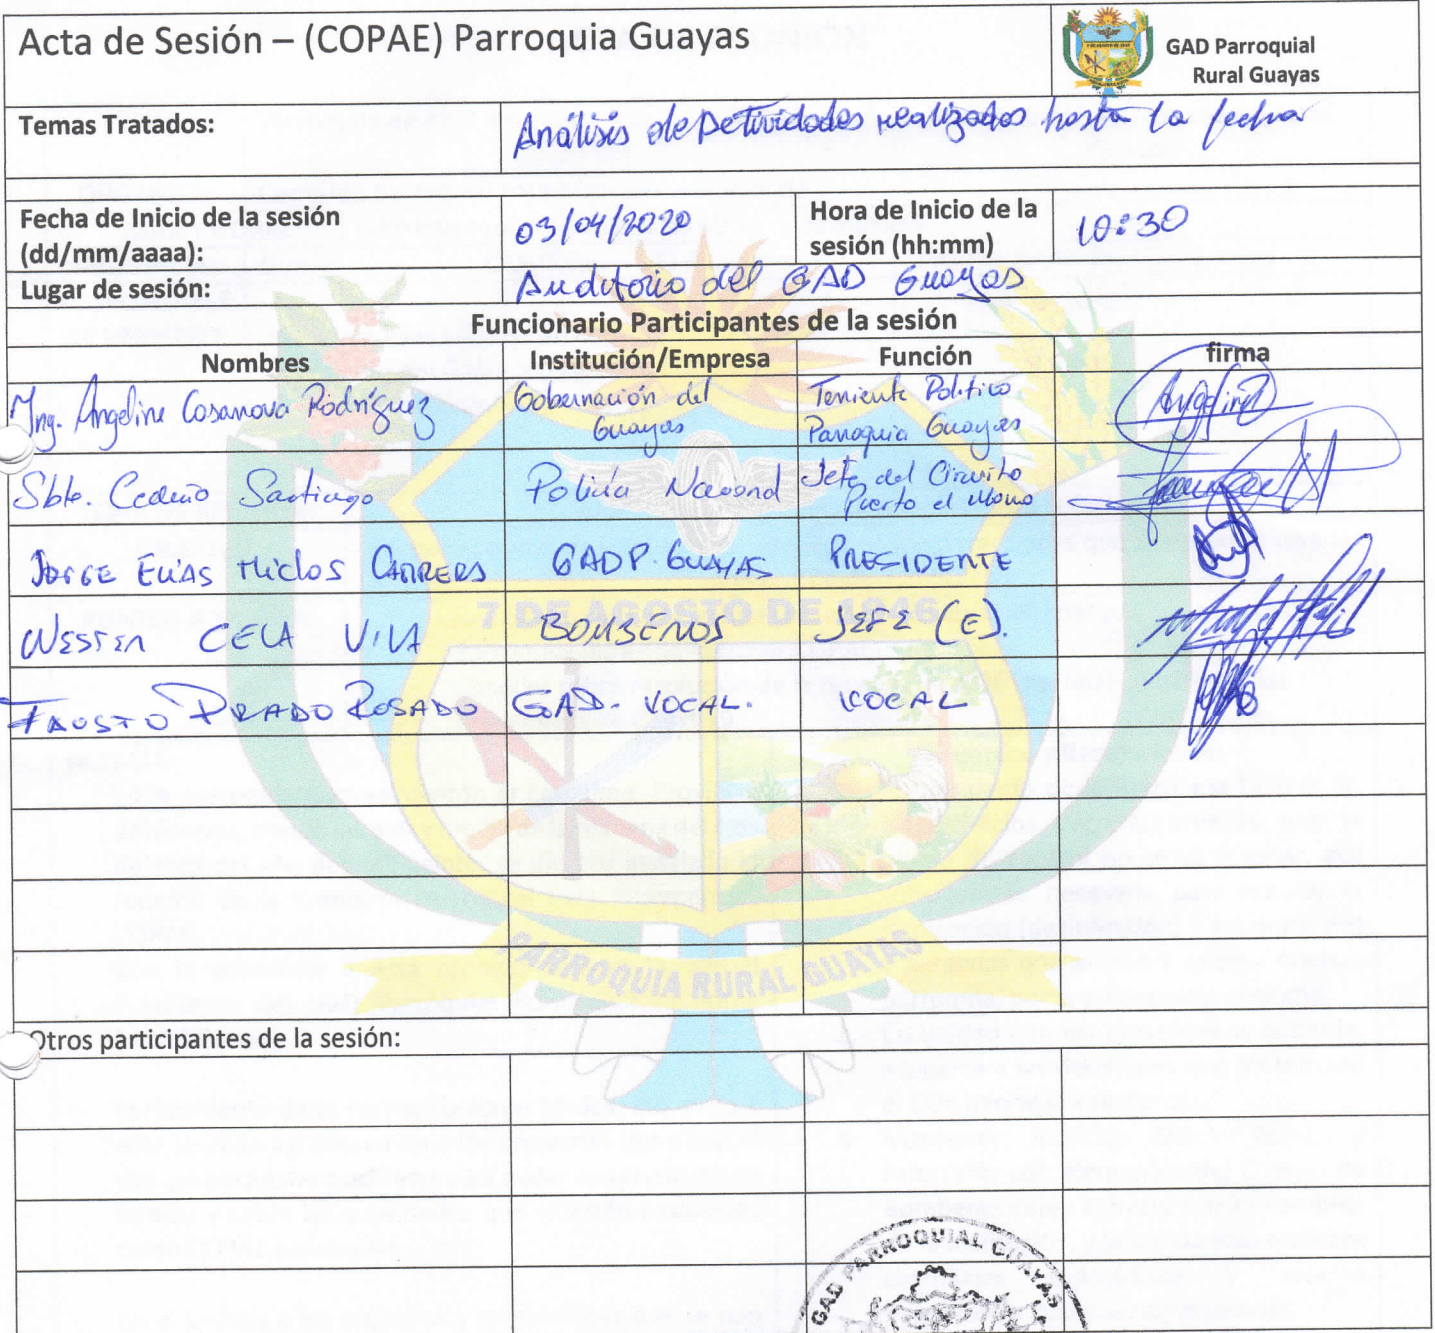 Acta de Sesión – (COPAE) Parroquia Guayas
GAD Parroquial
Rural Guayas
Temas Tratados:
Análisis de Actividades realizados hasta la fecha
Fecha de Inicio de la sesión
(dd/mm/aaaa):
03/04/2020
Hora de Inicio de la
sesión (hh:mm)
10:30
Lugar de sesión:
Auditorio del GAD Guayas
Funcionario Participantes de la sesión
Nombres
Institución/Empresa
Función
firma
Ing. Angeline Casanova Rodríguez
Gobernación del
Guayas
Teniente Político
Parroquia Guayas
Sbte. Cedeño Santiago
Policía Nacional
Jefe del Circuito
Puerto el Mono
JORGE ELIAS MACIAS CARRERA
GADP. GUAYAS
PRESIDENTE
WESTER CELA VILA
BOMBEROS
JEFE (E).
FAUSTO PRADO ROSADO
GAD. VOCAL.
VOCAL
7 DE AGOSTO DE 1946
PARROQUIA RURAL GUAYAS
Otros participantes de la sesión:
GAD PARROQUIAL GUAYAS